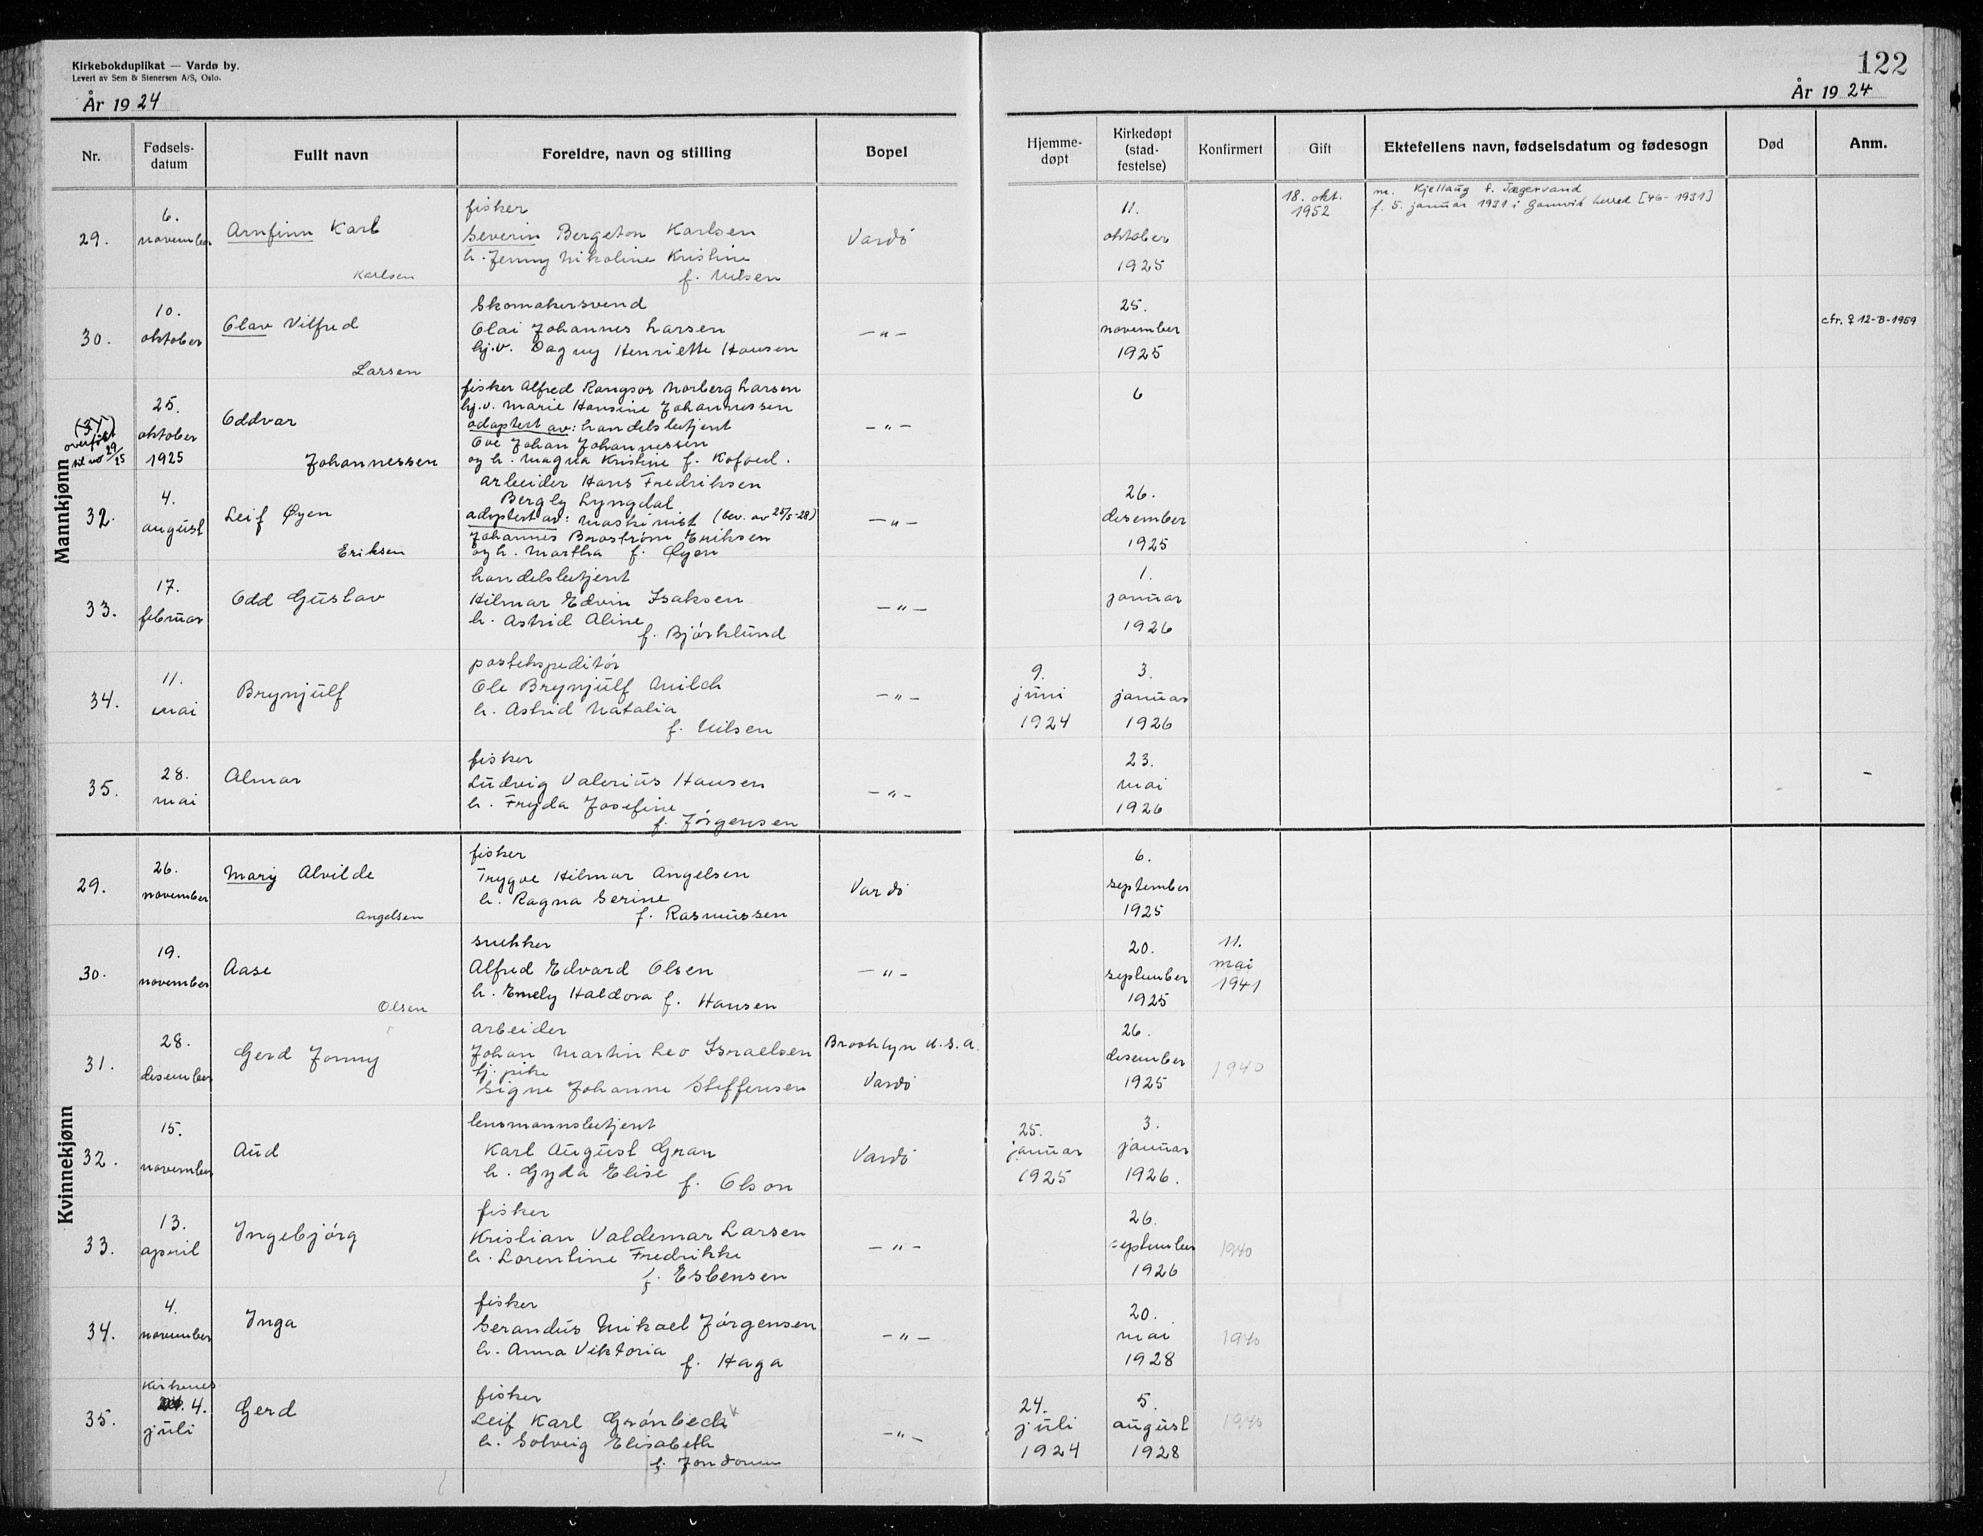 Kirkebokduplikat — Vardø by.
Levert av Sem & Stenersen A/S, Oslo.
År 1924
122
År 1924
Nr.
Fødsels-
datum
Fullt navn
Foreldre, navn og stilling
Bopel
Hjemme-
døpt
Kirkedøpt
(stad-
festelse)
Konfirmert
Gift
Ektefellens navn, fødselsdatum og fødesogn
Død
Anm.
Mankjønn
29.
6.
november
Arnfinn Karl
Karlsen
fisker
Severin Bergeton Karlsen
h. Jenny Nikoline Kristine
f. Nilsen
Vardö
11.
oktober
1925
18. okt.
1952
m. Kjellaug f. Tægervand
f. 5. januar 1931 i Gamvik herred [46-1931]
30.
10.
oktober
Olav Vilfred
Larsen
Skomakersvend
Olai Johannes Larsen
hj.v. Dagny Henriette Hansen
—„—
25.
november
1925
cfr. ♀ 12-B-1959
(31)
overført
til no 29/25
25.
oktober
1925
Oddvar
Johannessen
fisker Alfred Rangsor Norberg Larsen
hj.v. Marie Hansine Johannessen
adoptert av: handelsbetjent
Ove Johan Johannessen
og h. Magna Kristine f. Kofoed.
—„—
6
32.
4.
august
Leif Øyen
Eriksen
arbeider Hans Fredriksen
Bergly Lyngdal
adoptert av: maskinist (bev. av 25/5-28)
Johannes Broström Eriksen
og h. Martha f. Øyen
—„—
26.
desember
1925
33.
17.
februar
Odd Gustav
handelsbetjent
Hilmar Edvin Isaksen
h. Astrid Aline
f. Björklund
—„—
1.
januar
1926
34.
11.
mai
Brynjulf
postekspeditör
Ole Brynjulf Milch
h. Astrid Natalia
f. Nilsen
—„—
9.
juni
1924
3.
januar
1926
35.
28.
mai
Almar
fisker
Ludvig Valerius Hansen
h. Fryda Josefine
f. Jörgensen
—„—
23.
mai
1926
–
Kvinnekjønn
29.
26.
november
Mary Alvilde
Angelsen
fisker
Trygve Hilmar Angelsen
h. Ragna Serine
f. Rasmussen
Vardö
6.
september
1925
30.
19.
november
Aase
Olsen
snekker
Alfred Edvard Olsen
h. Emely Haldora f. Hansen
—„—
20.
september
1925
11.
mai
1941
31.
28.
desember
Gerd Jonny
arbeider
Johan Martin Leo Israelsen
tj. pike
Signe Johanne Steffensen
Brooklyn U.S.A.
Vardö
26.
desember
1925
1940
32.
15.
november
Aud
lensmannsbetjent
Karl August Gran
h. Gyda Elise
f. Olson
Vardö
25.
januar
1925
3.
januar
1926.
33.
13.
april
Ingebjörg
fisker
Kristian Valdemar Larsen
h. Lorentine Fredrikke
f. Esbensen
—„—
26.
september
1926
1940
34.
4.
november
Inga
fisker
Serandus Mikael Jörgensen
h. Anna Viktoria
f. Haga
—„—
20.
mai
1928
1940
35.
Kirkenes
4.
juli
Gerd
fisker
Leif Karl Grönbech
h. Solveig Elisabeth
f.
—„—
24.
juli
1924
5.
august
1928
1940